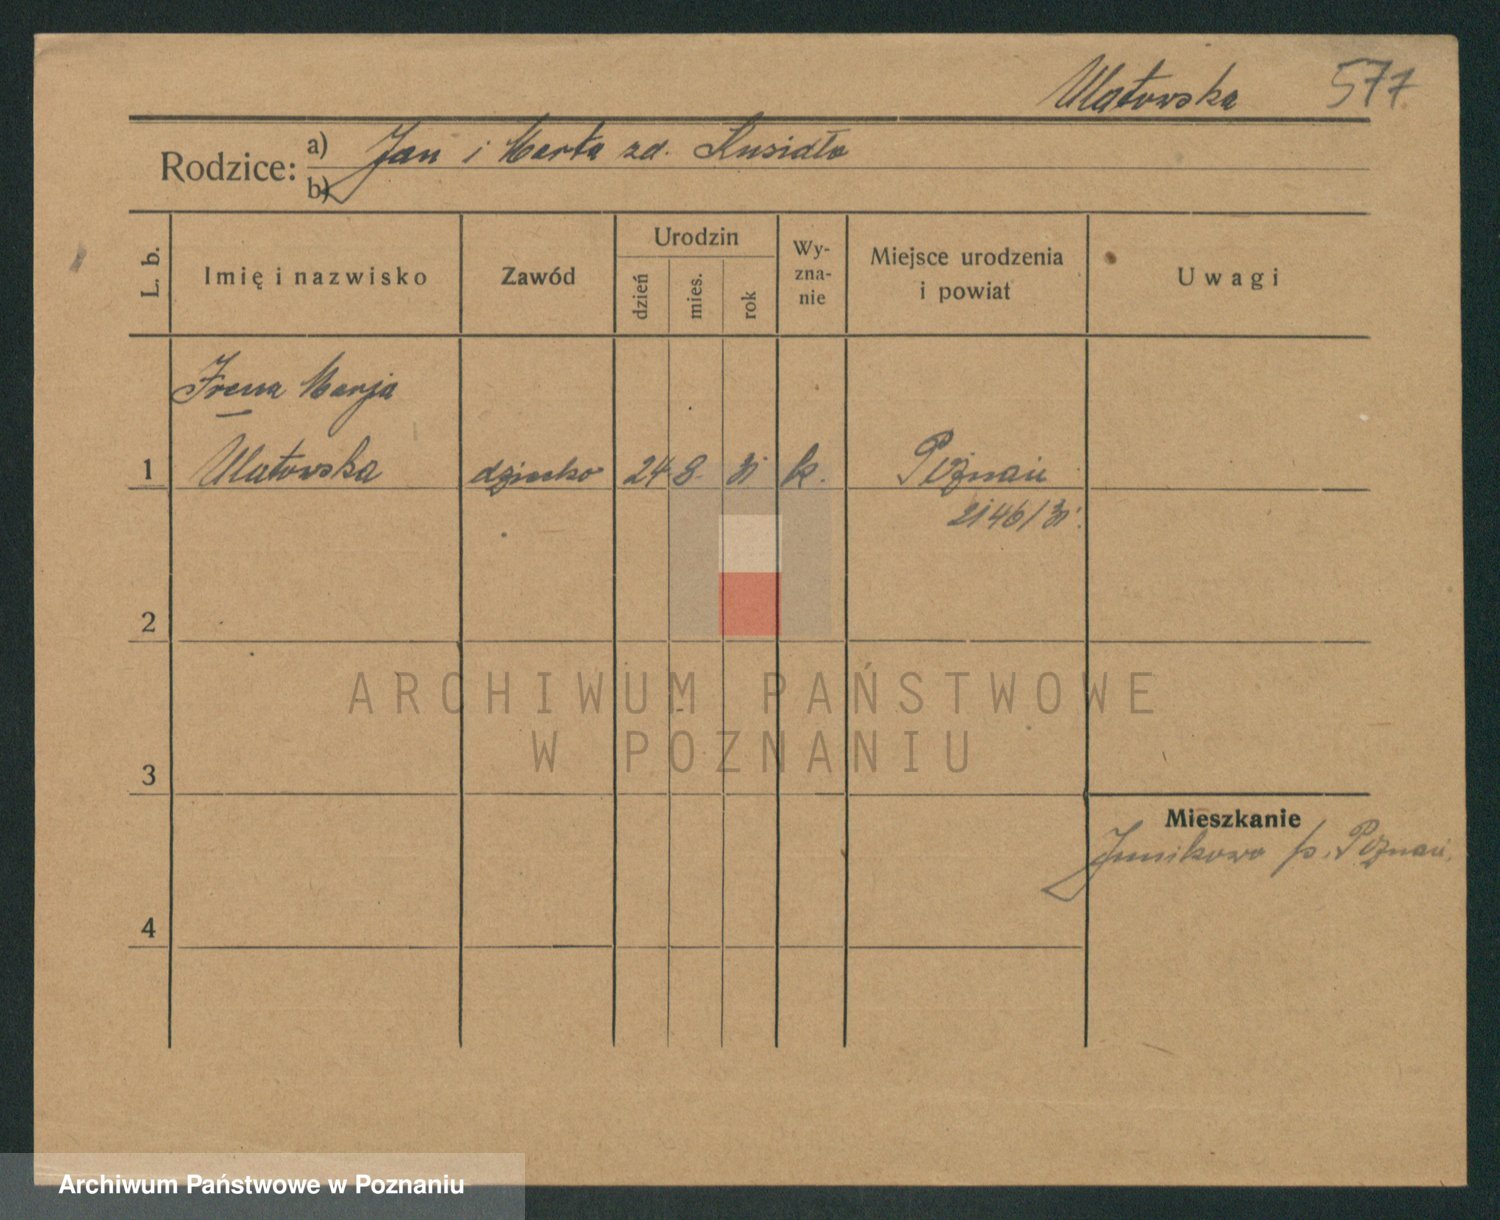 Ulatowska 577
Rodzice: a) Jan i Marta zd. Kusidło
b)
L. b.
Imię i nazwisko
Zawód
Urodzin
dzień
mies.
rok
Wy-
zna-
nie
Miejsce urodzenia
i powiat
Uwagi
Irena Marja
1 Ulatowska dziecko 24 8. 31 k. Poznań
2146/31.
2
ARCHIWUM PAŃSTWOWE
W POZNANIU
3
Mieszkanie
Junikowo p. Poznań.
4
Archiwum Państwowe w Poznaniu